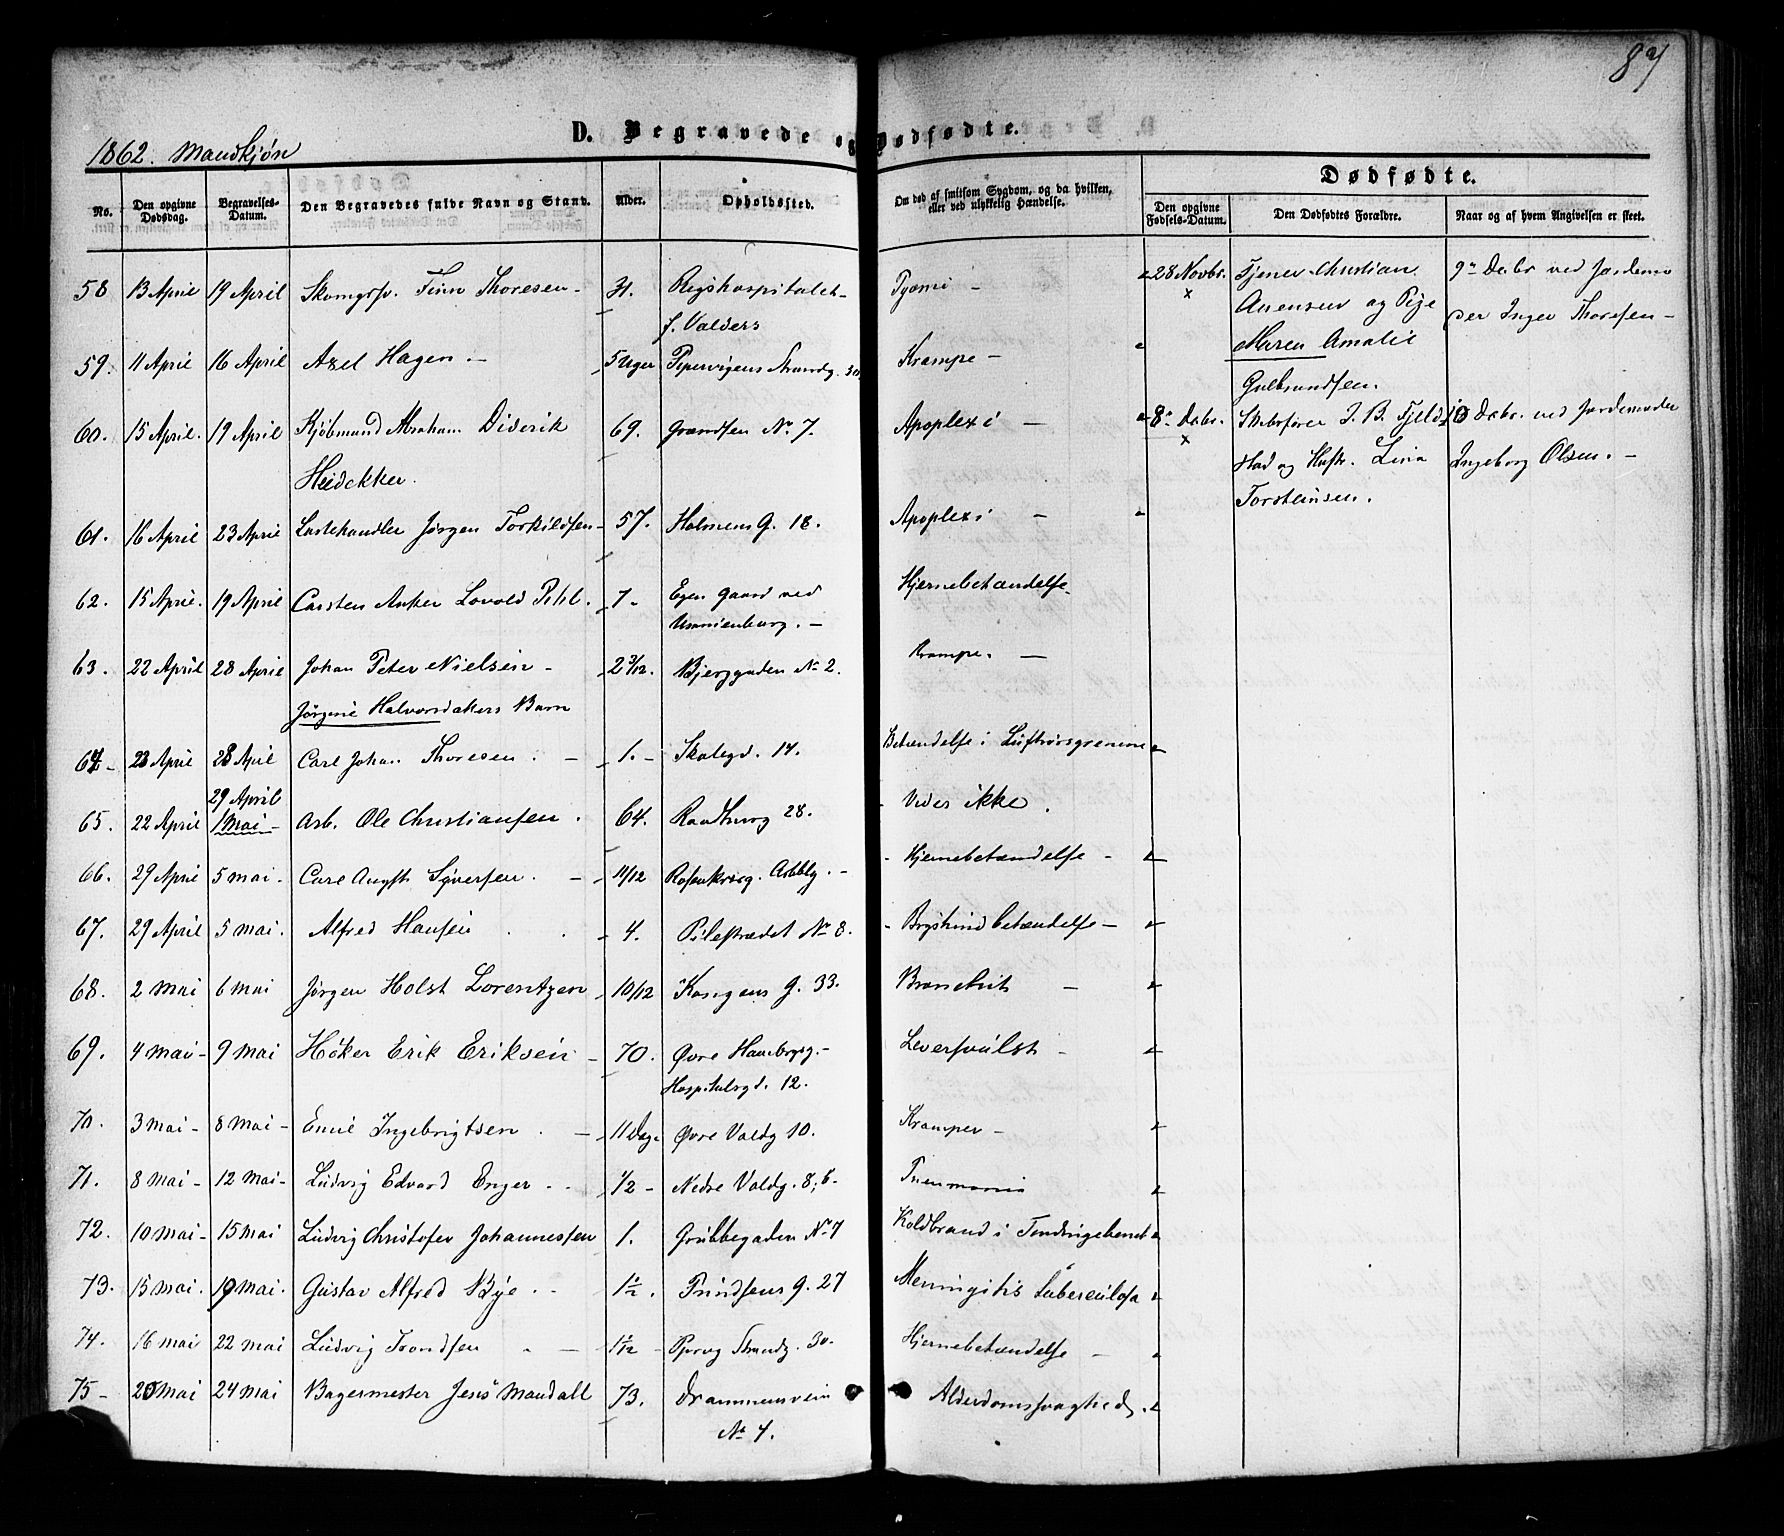 87
1862. Mandkjøn
D. Begravede og Dødfødte.
No. Den opgivne Dødsdag. Begravelses-Datum. Den Begravedes fulde Navn og Stand. Alder. Opholdssted. Om død af smitsom Sygdom, og da hvilken, eller ved ulykkelig Hændelse.
Dødfødte.
Den opgivne Fødsels-Datum. Den Dødfødtes Forældre. Naar og af hvem Angivelsen er skeet.
58 13 April 19 April Skomgsv. Finn Thoresen - 31. Rigshospitalet - Pyæmi - 28 Novbr. Tjener Christian 9de Debr ved Jordemo
f. Valders x Arensen og Pige der Inger Thoresen -
59. 11 April 16 April Axel Hagen - 5 Uger Pipervigens Strandg. 30 Krampe - Maren Amalie
Gulbrandsen.
60. 15 April. 19 April Kjøbmand Abraham Diderik 69. Grændsen No 7. Apoplexi - 8de Debr. Skibsfører J. B. Fjeld 10 Debr. ved Jordemoder
Heidekker. x stad og Hustr. Lina Ingeborg Olsen. -
Torsteinsen.
61. 16 April 23 April Lastehandler Jørgen Torkildsen - 57. Holmens G. 18. Apoplexi -
62. 15 April. 19 April Carsten Anker Lovold Pihl. 7. Egen Gaard ved Hjernebetændelse.
Uranienburg. -
63. 22 April 28 April Johan Peter Nielsen - 2 3/12. Bjerggaden No 2. Krampe. -
Jørgine Halvorsdatters Barn
64 - 23 April 28 April Carl Johan Thoresen. - 1. - Skolegd. 14. Betændelse i Luftrørsgrenene
29 April
65. 22 April 1 Mai - Arb. Ole Christiansen. 64. Raadhusg 28. Vides ikke.
66. 29 April 5 Mai - Carl Augst Syversen. - 11/12 Rosenkrsg. Arbbyg. - Hjernebetændelse -
67. 29 April 5 Mai. Alfred Hansen 4. Pilestrædet No 8. Brysthindebetændelse -
68. 2 Mai 6 Mai Jørgen Holst Lorentzen 10/12 Kongens G. 33. Bronchit -
69. 4 Mai - 9 Mai Høker Erik Eriksen - 70. Øvre Hammbgsg. - Leversvulst -
Hospitalsgd. 12.
70. 3 Mai - 8 Mai - Emil Ingebrigtsen. - 11 Dage Øvre Voldg 10. Kramper -
71. 8 Mai - 12 Mai - Ludvig Edvard Enger - - 1/2 - Nedre Voldg. 8; 6 - Pneumonia
72. 10 Mai - 15 Mai Ludvig Christofer Johannessen 1. Grubbegaden No 7 Koldbrand i Tindingebenet
73. 15 Mai. 19 Mai. Gustav Alfred Bye - - 1 1/2. Trondsens G. 27 Meningitis Tuberculosa
74. 16 Mai 22 Mai Ludvig Trondsen - - 1 1/12 - Pprvg Strandg. 30. Hjernebetændelse -
75 - 20 Mai 24 Mai Bagermester Jens Mandall 73. Drammensvein Alderdomssvaghed.
No 4.